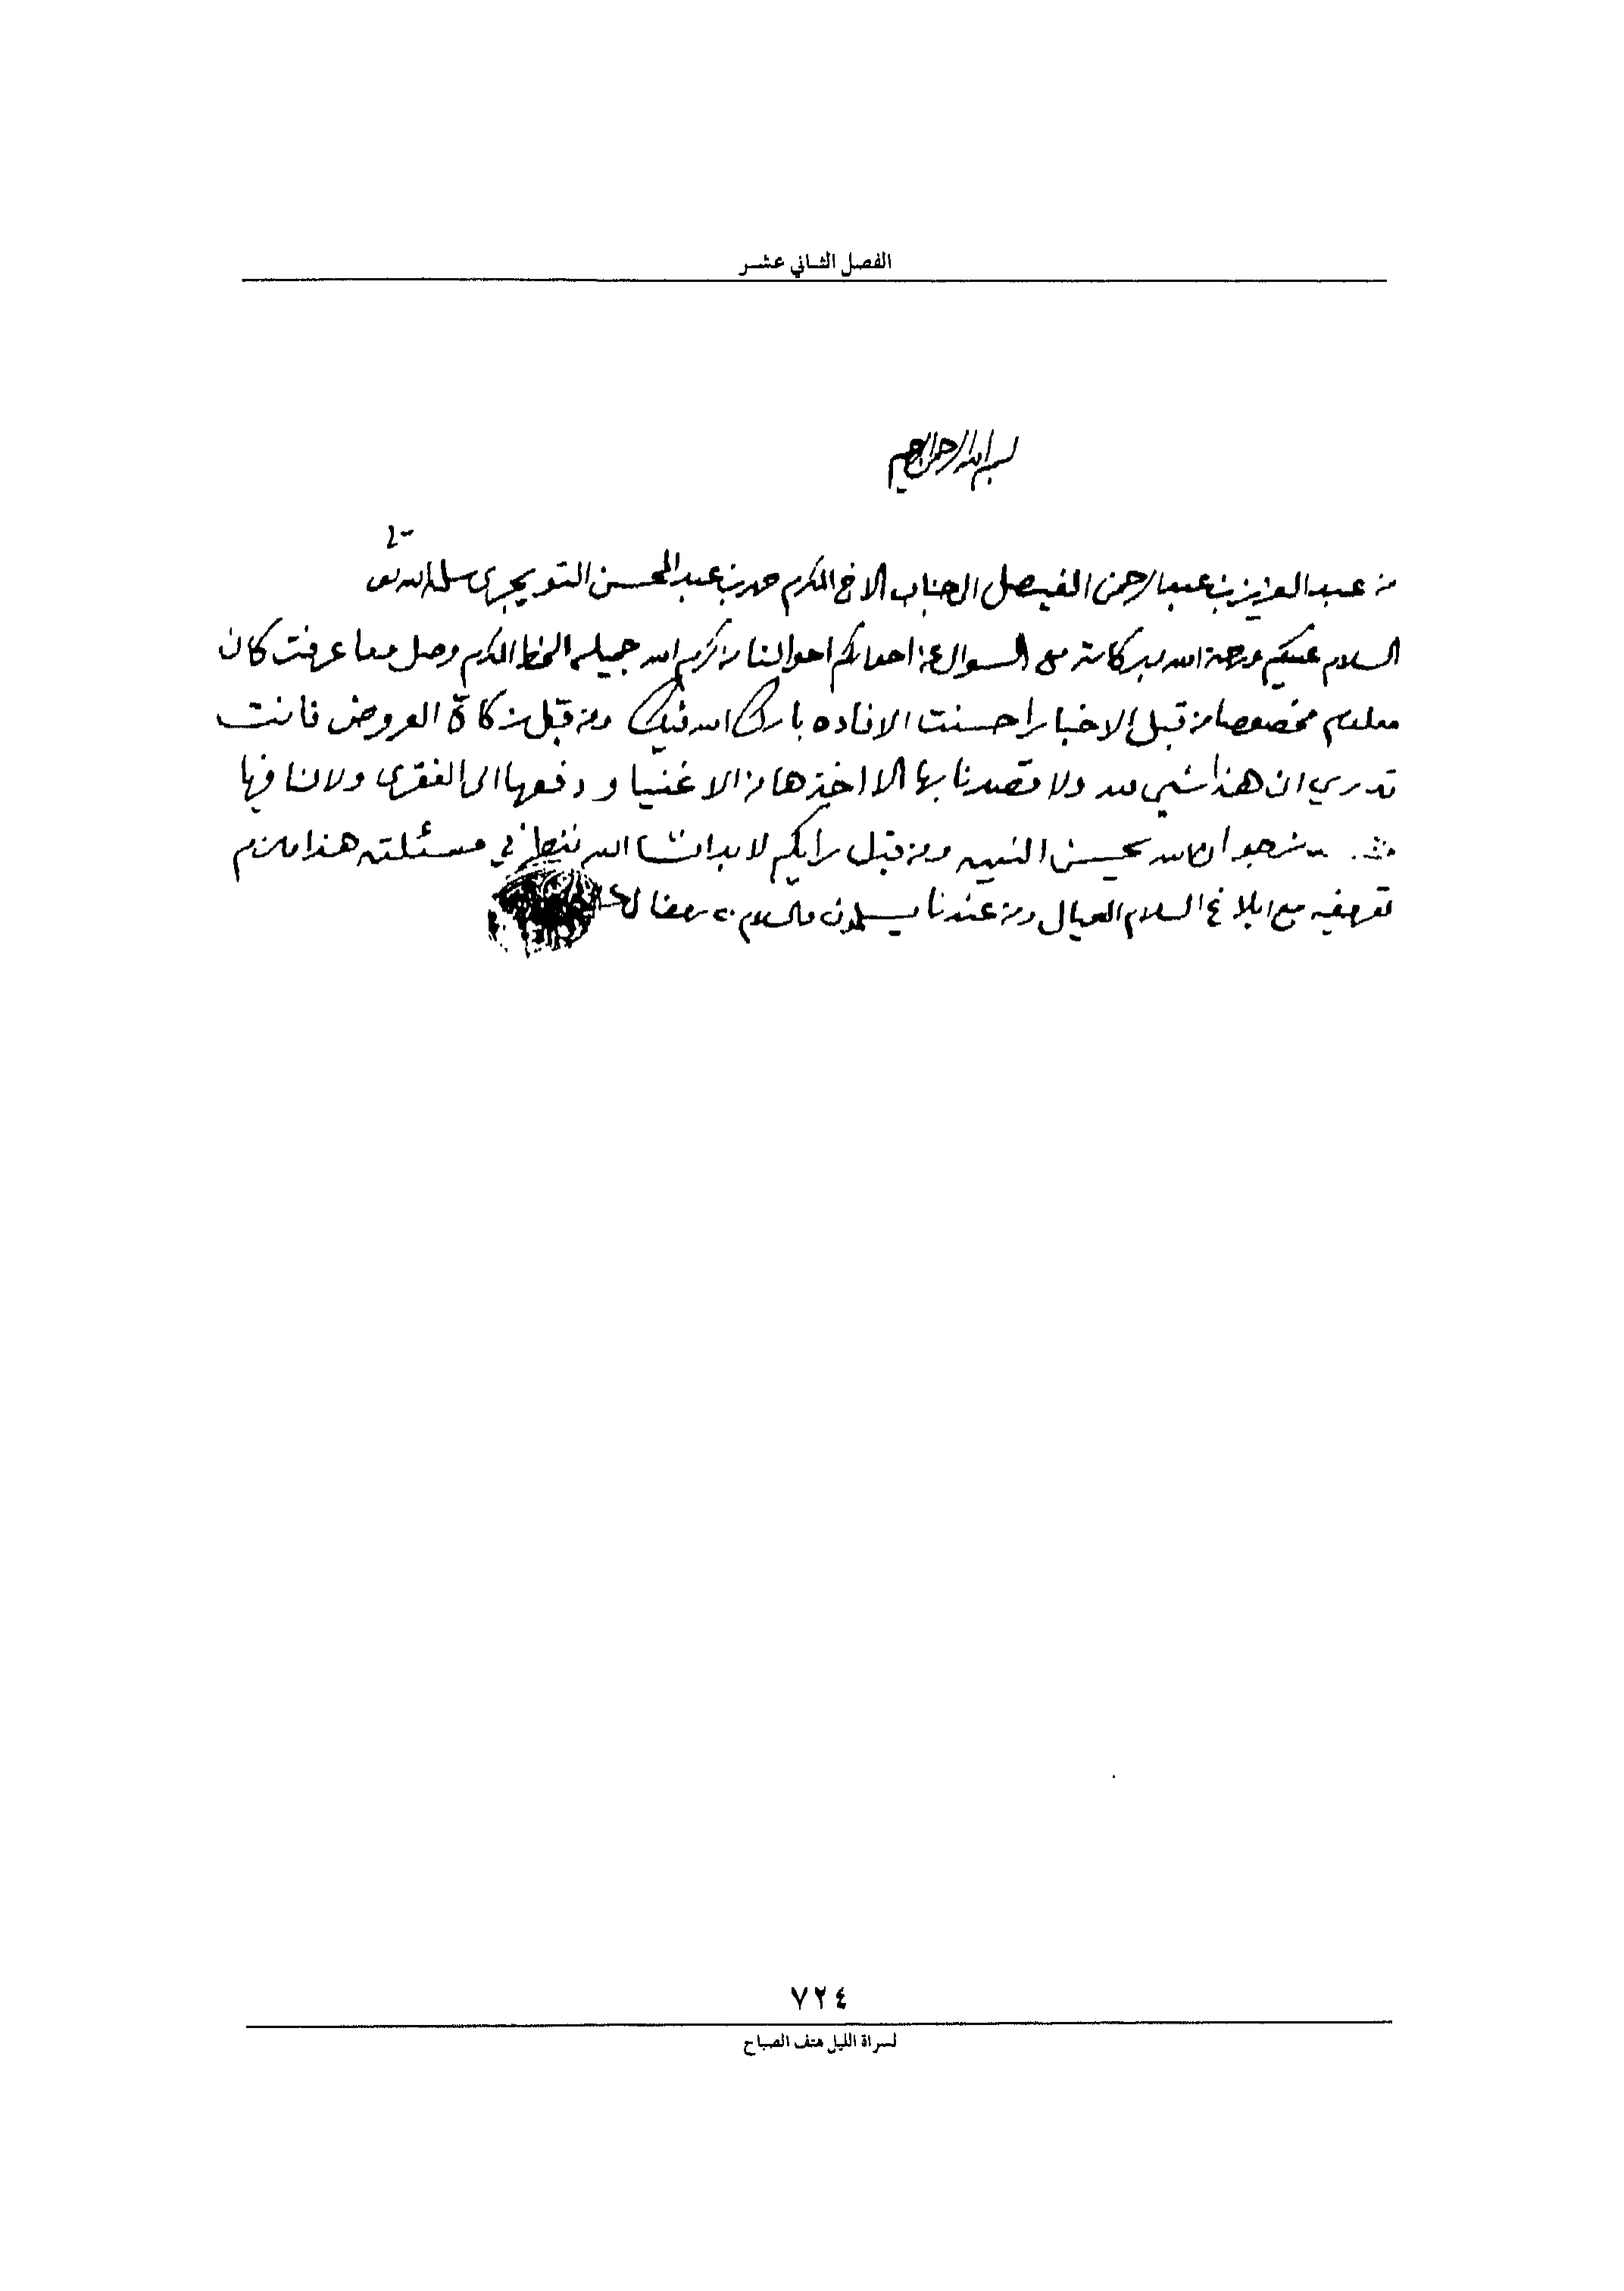 الفصل الثاني عشر
بسم الله الرحمن الرحيم
من عبد العزيز بن عبد الرحمن الفيصل الى جناب الاخ المكرم حمد بن عبد المحسن التويجري سلمه الله تعالى
السلام عليكم ورحمة الله وبركاته مع السوال عن احوالكم احوالنا من كرم الله جميله الخط المكرم وصل وما عرفت كان
معلوم مخصوصا من قبل الاخبار احسنت الافاده بارك الله فيك ومن قبل زكاة العروض فانت
تدري ان هذا شي لله ولا قصدنا بها الا اخذها من الاغنيا ودفعها الى الفقرى ولا لنا فيها
نرجو ان الله يحسن النيه ومن قبل رايكم لا بد انشا الله ننظر في مسئلته هذا ملزم
تعريفه مع ابلاغ السلام العيال ومن عندنا يسلمون والسلام
٧٢٤
لسراة الليل هتف الصباح